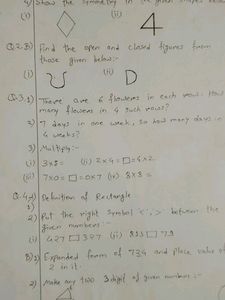 4) Show the symmetry in the given shapes below
(i) (ii) 4
Q.2.B) Find the open and closed figures from
those given below:-
(i) (ii) D
Q.3.1) There are 6 flowers in each row. How
many flowers in 4 such rows?
2) 7 days in one week, so how many days in
4 weeks?
3) Multiply:-
(i) 3x5= (ii) 2x4=□=4x2
(iii) 7x0=□=0x7 (iv) 8x8=
Definition of Rectangle
2) Put the right symbol '<', '>' between the
given numbers:-
(i) 427 □ 327 (ii) □
Expanded form of 734 and place value of
2 in it.
2) Make any two 3 digit of given numbers:-